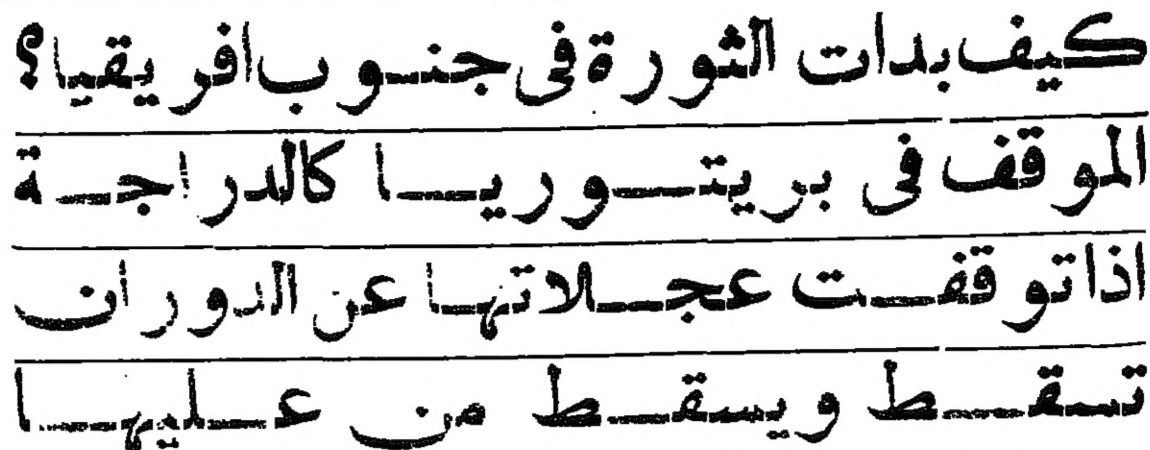 كيف بدات الثورة فى جنوب افريقيا؟
الموقف فى بريتوريا كالدراجة
اذا توقفت عجلاتها عن الدوران
تسقط ويسقط من عليها